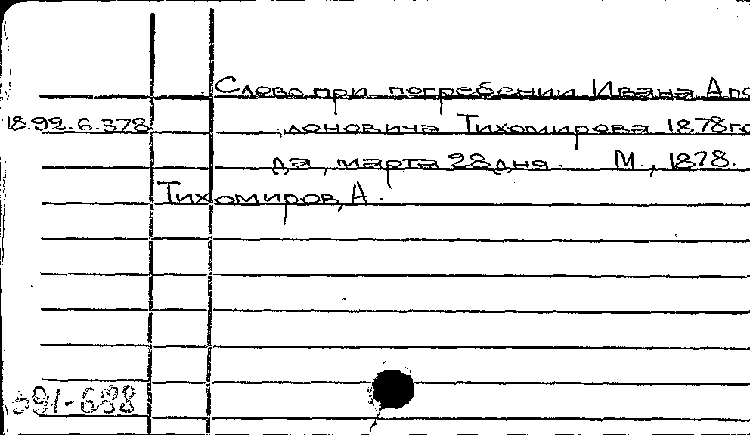 Слово при погребении Ивана Апо
18.99.6.378
лоновича Тихомирова 1878го
да, марта 28 дня. М., 1878.
Тихомиров, А.
391-688